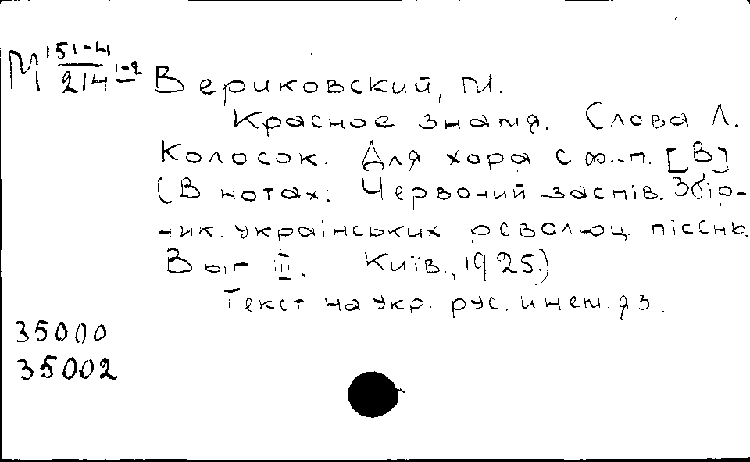 М 151-4/214 1-2
Вериковский, М.
Красное знамя. Слова Л.
Колосок. Для хора с ф.-п. [В]
(В нотах: Червоний заспів. Збір-
ник. українських революц пісень.
Вып III. Київ., 1925.)
Текст на укр. рус. и нем. яз.
35000
35002